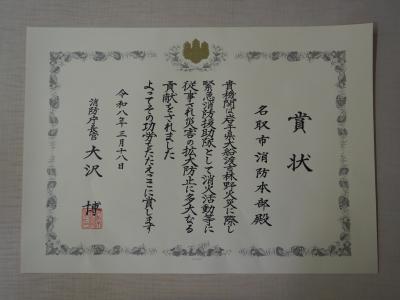 賞状
名取市消防本部殿
貴機関は岩手県大船渡市林野火災に際し
緊急消防援助隊として消火活動等に
従事され災害の拡大防止に多大なる
貢献をされました
よってその功労をたたえここに賞します
令和八年三月十八日
消防庁長官 大沢 博